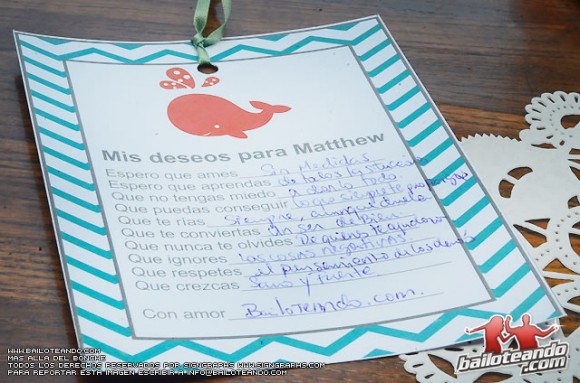 Mis deseos para Matthew
Espero que ames Sin Medidas
Espero que aprendas de todos los sucesos
Que no tengas miedo a darlo todo
Que puedas conseguir lo que siempre te propongas
Que te rías Siempre, aunque duela
Que te conviertas en ser de bien
Que nunca te olvides De quien te ayudaron
Que ignores las cosas negativas
Que respetes el pensamiento de los demás
Que crezcas Sano y fuerte
Con amor Bailoteando.com.
WWW.BAILOTEANDO.COM
MAS ALLA DEL BONCHE
TODOS LOS DERECHOS RESERVADOS POR SIGNGRAPHS WWW.SIGNGRAPHS.COM
PARA REPORTAR ESTA IMAGEN ESCRIBIR A INFO@BAILOTEANDO.COM
bailoteando
.com